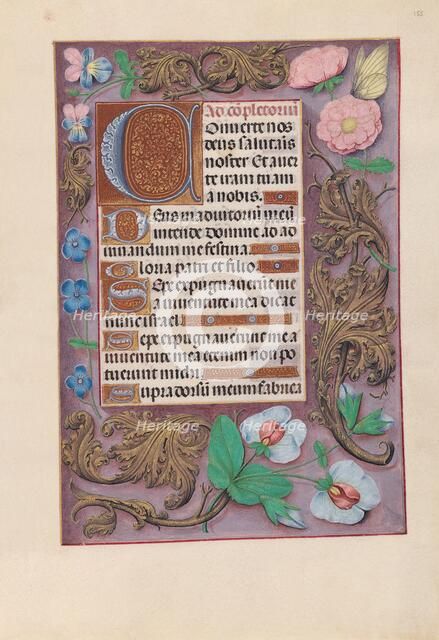 155
Ad cõpletoriũ
Onuerte nos
deus salutaris
noster Et auer
te iram tuam
a nobis.
Deus in adiutoriũ meũ
intende domine ad ad
iuuandum me festina
Gloria patri et filio.
Sepe expugnauerũt me
a iuuentute mea dicat
nunc israel
Sepe expugnauerunt me
a iuuentute mea etenim non po
tuerunt michi
Supra dorsũ meum fabrica
Heritage Heritage Heritage
Heritage Heritage Heritage
Heritage Heritage Heritage